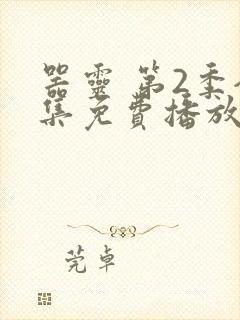 器靈 第2季全
集免費播放
莞卓